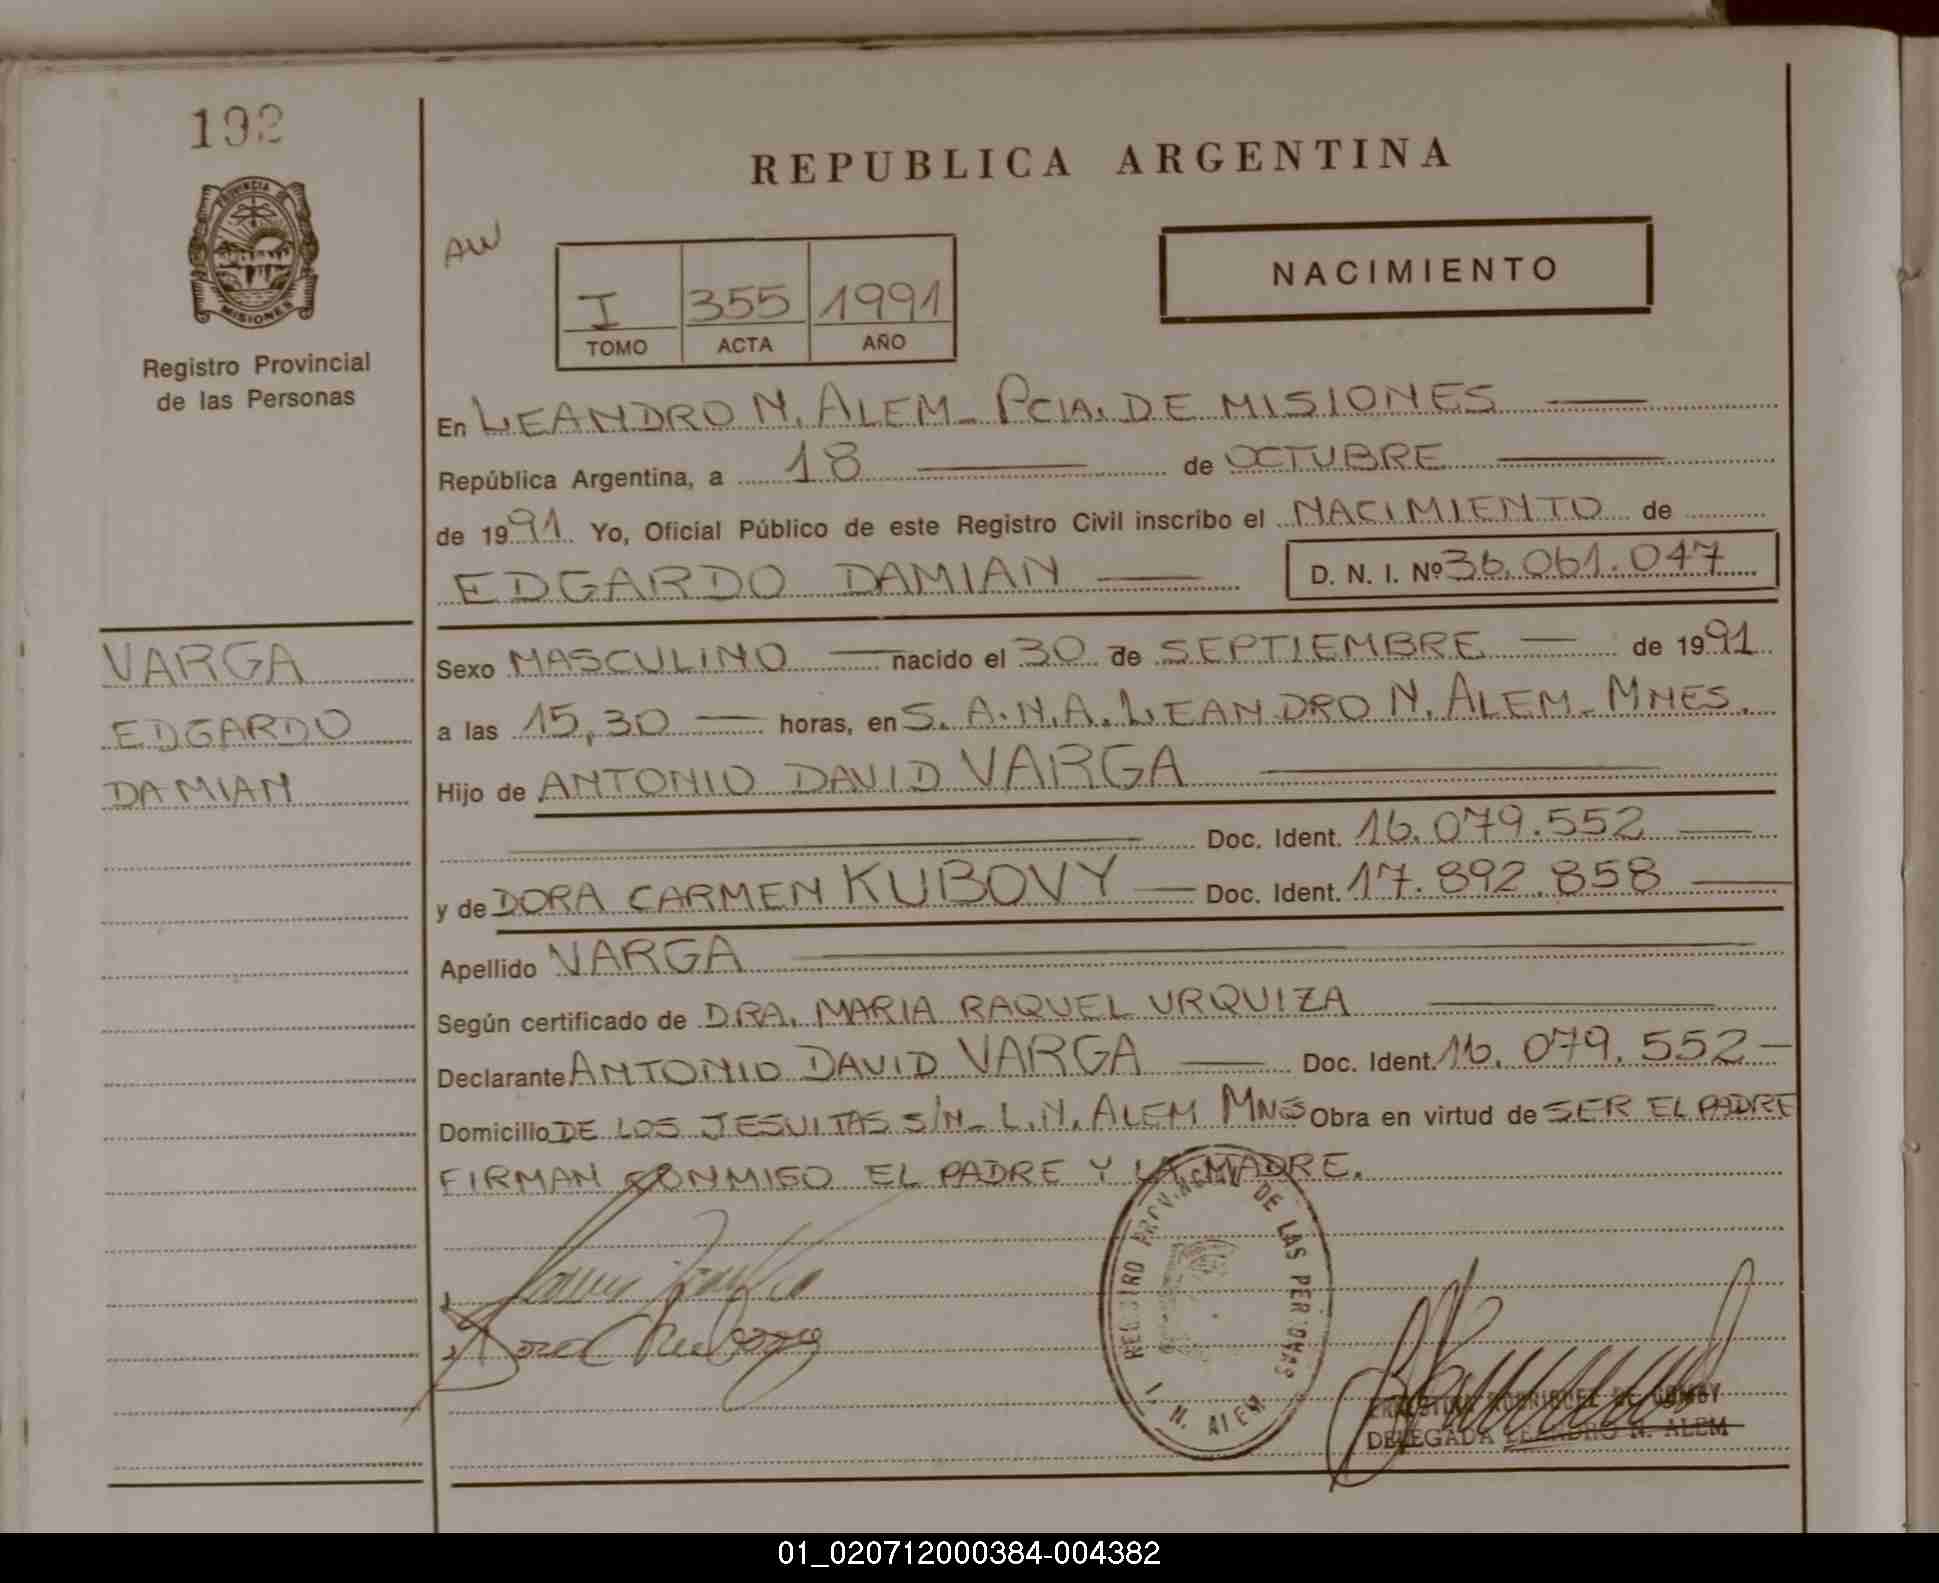 192
PROVINCIA DE
MISIONES
Registro Provincial
de las Personas
REPUBLICA ARGENTINA
AW
NACIMIENTO
I 355 1991
TOMO ACTA AÑO
En LEANDRO N. ALEM - PCIA. DE MISIONES
República Argentina, a 18 de OCTUBRE
de 1991. Yo, Oficial Público de este Registro Civil inscribo el NACIMIENTO de
EDGARDO DAMIAN D. N. I. Nº 36.061.047
VARGA
EDGARDO
DAMIAN
Sexo MASCULINO nacido el 30 de SEPTIEMBRE de 1991
a las 15,30 horas, en S. A.N.A. LEANDRO N. ALEM - MNES.
Hijo de ANTONIO DAVID VARGA
Doc. Ident. 16.079.552
y de DORA CARMEN KUBOVY Doc. Ident. 17.892.858
Apellido VARGA
Según certificado de DRA. MARIA RAQUEL URQUIZA
Declarante ANTONIO DAVID VARGA Doc. Ident. 16.079.552
Domicilio DE LOS JESUITAS S/N - L.N. ALEM MNES Obra en virtud de SER EL PADRE
FIRMAN CONMIGO EL PADRE Y LA MADRE.
REGISTRO PROVINCIAL DE LAS PERSONAS
L. N. ALEM
RODRIGUEZ DE
DELEGADA LEANDRO N. ALEM
01_020712000384-004382